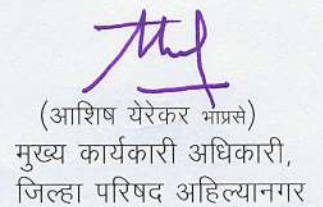 (आशिष येरेकर भाप्रसे)
मुख्य कार्यकारी अधिकारी,
जिल्हा परिषद अहिल्यानगर